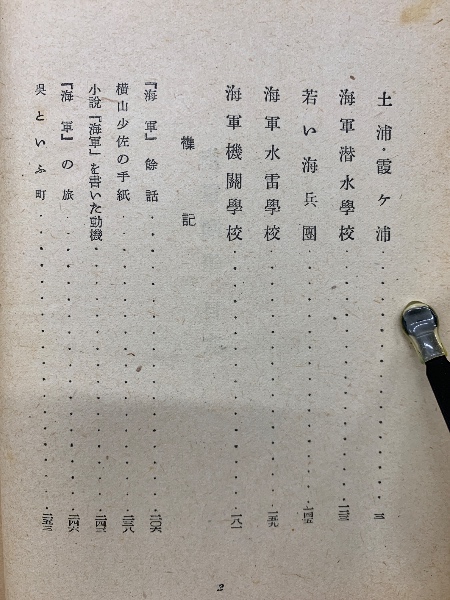 土浦・霞ケ浦
海軍潜水學校……一二三
若い海兵團……一四五
海軍水雷學校……一五九
海軍機關學校……一八一
襍記
『海軍』餘話……二〇六
横山少佐の手紙……二三八
小說『海軍』を書いた動機……二四三
『海軍』の旅……二四六
呉といふ町……二五三
2